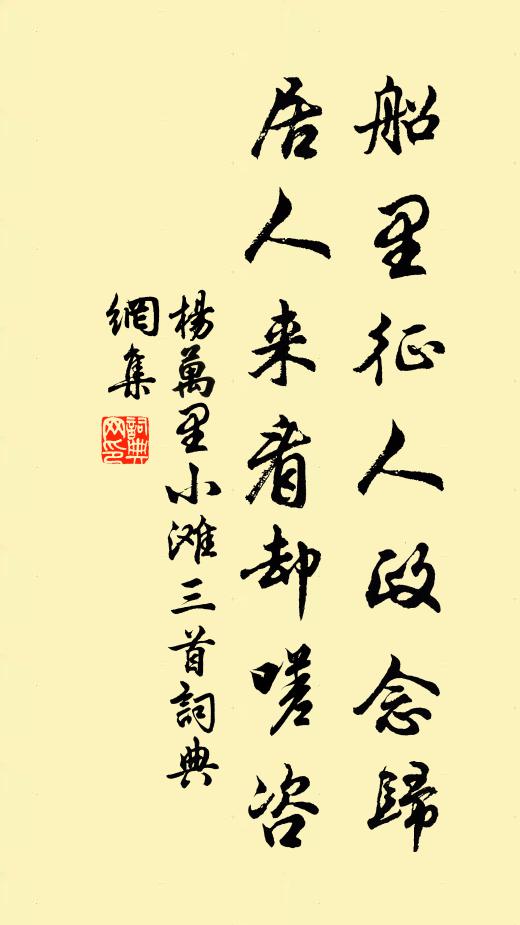 船里征人政念歸
居人来看却嗟咨
楊萬里小滩三首詞典
網集
詞典
网印